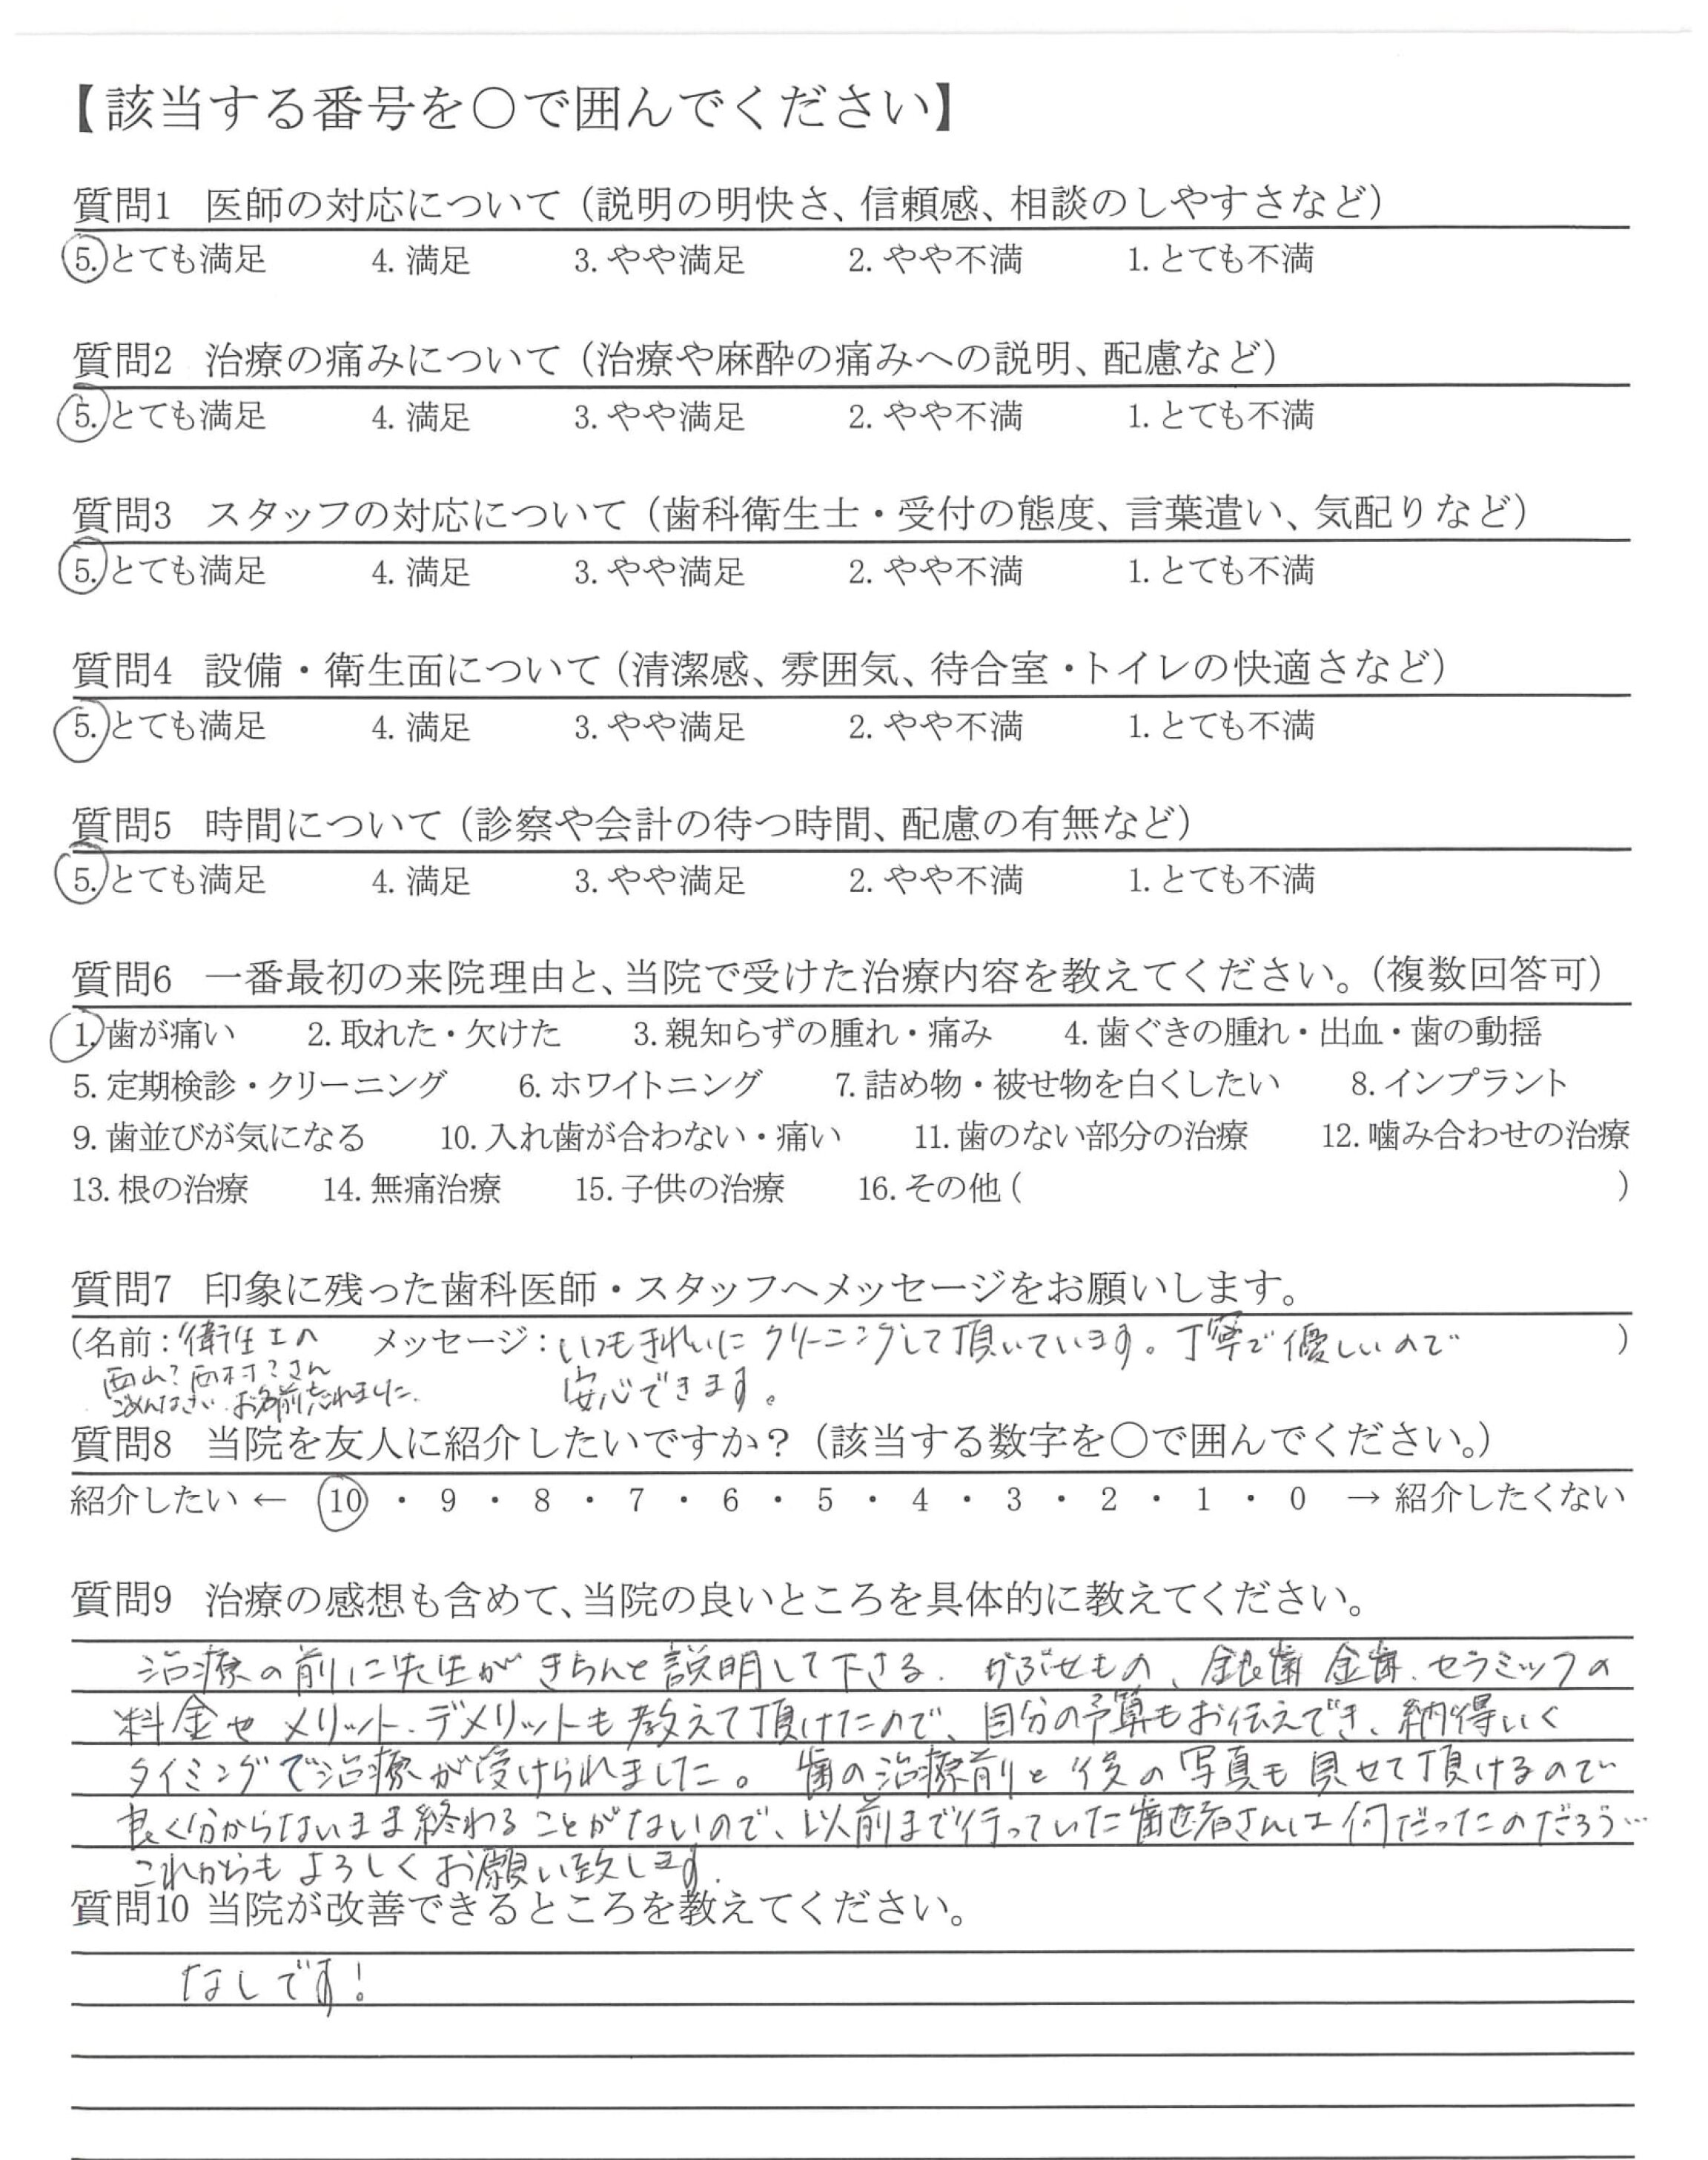 【該当する番号を〇で囲んでください】
質問1 医師の対応について（説明の明快さ、信頼感、相談のしやすさなど）
5.とても満足 4.満足 3.やや満足 2.やや不満 1.とても不満
質問2 治療の痛みについて（治療や麻酔の痛みへの説明、配慮など）
5.とても満足 4.満足 3.やや満足 2.やや不満 1.とても不満
質問3 スタッフの対応について（歯科衛生士・受付の態度、言葉遣い、気配りなど）
5.とても満足 4.満足 3.やや満足 2.やや不満 1.とても不満
質問4 設備・衛生面について（清潔感、雰囲気、待合室・トイレの快適さなど）
5.とても満足 4.満足 3.やや満足 2.やや不満 1.とても不満
質問5 時間について（診察や会計の待つ時間、配慮の有無など）
5.とても満足 4.満足 3.やや満足 2.やや不満 1.とても不満
質問6 一番最初の来院理由と、当院で受けた治療内容を教えてください。（複数回答可）
1.歯が痛い 2.取れた・欠けた 3.親知らずの腫れ・痛み 4.歯ぐきの腫れ・出血・歯の動揺
5.定期検診・クリーニング 6.ホワイトニング 7.詰め物・被せ物を白くしたい 8.インプラント
9.歯並びが気になる 10.入れ歯が合わない・痛い 11.歯のない部分の治療 12.噛み合わせの治療
13.根の治療 14.無痛治療 15.子供の治療 16.その他（ ）
質問7 印象に残った歯科医師・スタッフへメッセージをお願いします。
（名前：衛生士の メッセージ：いつもきれいにクリーニングして頂いています。丁寧で優しいので ）
西山？西村？さん 安心できます。
ごめんなさい、お名前忘れました。
質問8 当院を友人に紹介したいですか？（該当する数字を〇で囲んでください。）
紹介したい ← 10 ・ 9 ・ 8 ・ 7 ・ 6 ・ 5 ・ 4 ・ 3 ・ 2 ・ 1 ・ 0 → 紹介したくない
質問9 治療の感想も含めて、当院の良いところを具体的に教えてください。
治療の前に先生がきちんと説明して下さる。かぶせもの、銀歯 金歯、セラミックの
料金やメリット、デメリットも教えて頂けたので、自分の予算もお伝えでき、納得いく
タイミングで治療が受けられました。 歯の治療前と後の写真も見せて頂けるので
良く分からないまま終わることがないので、以前まで行っていた歯医者さんは何だったのだろう…
これからもよろしくお願い致します。
質問10 当院が改善できるところを教えてください。
なしです！